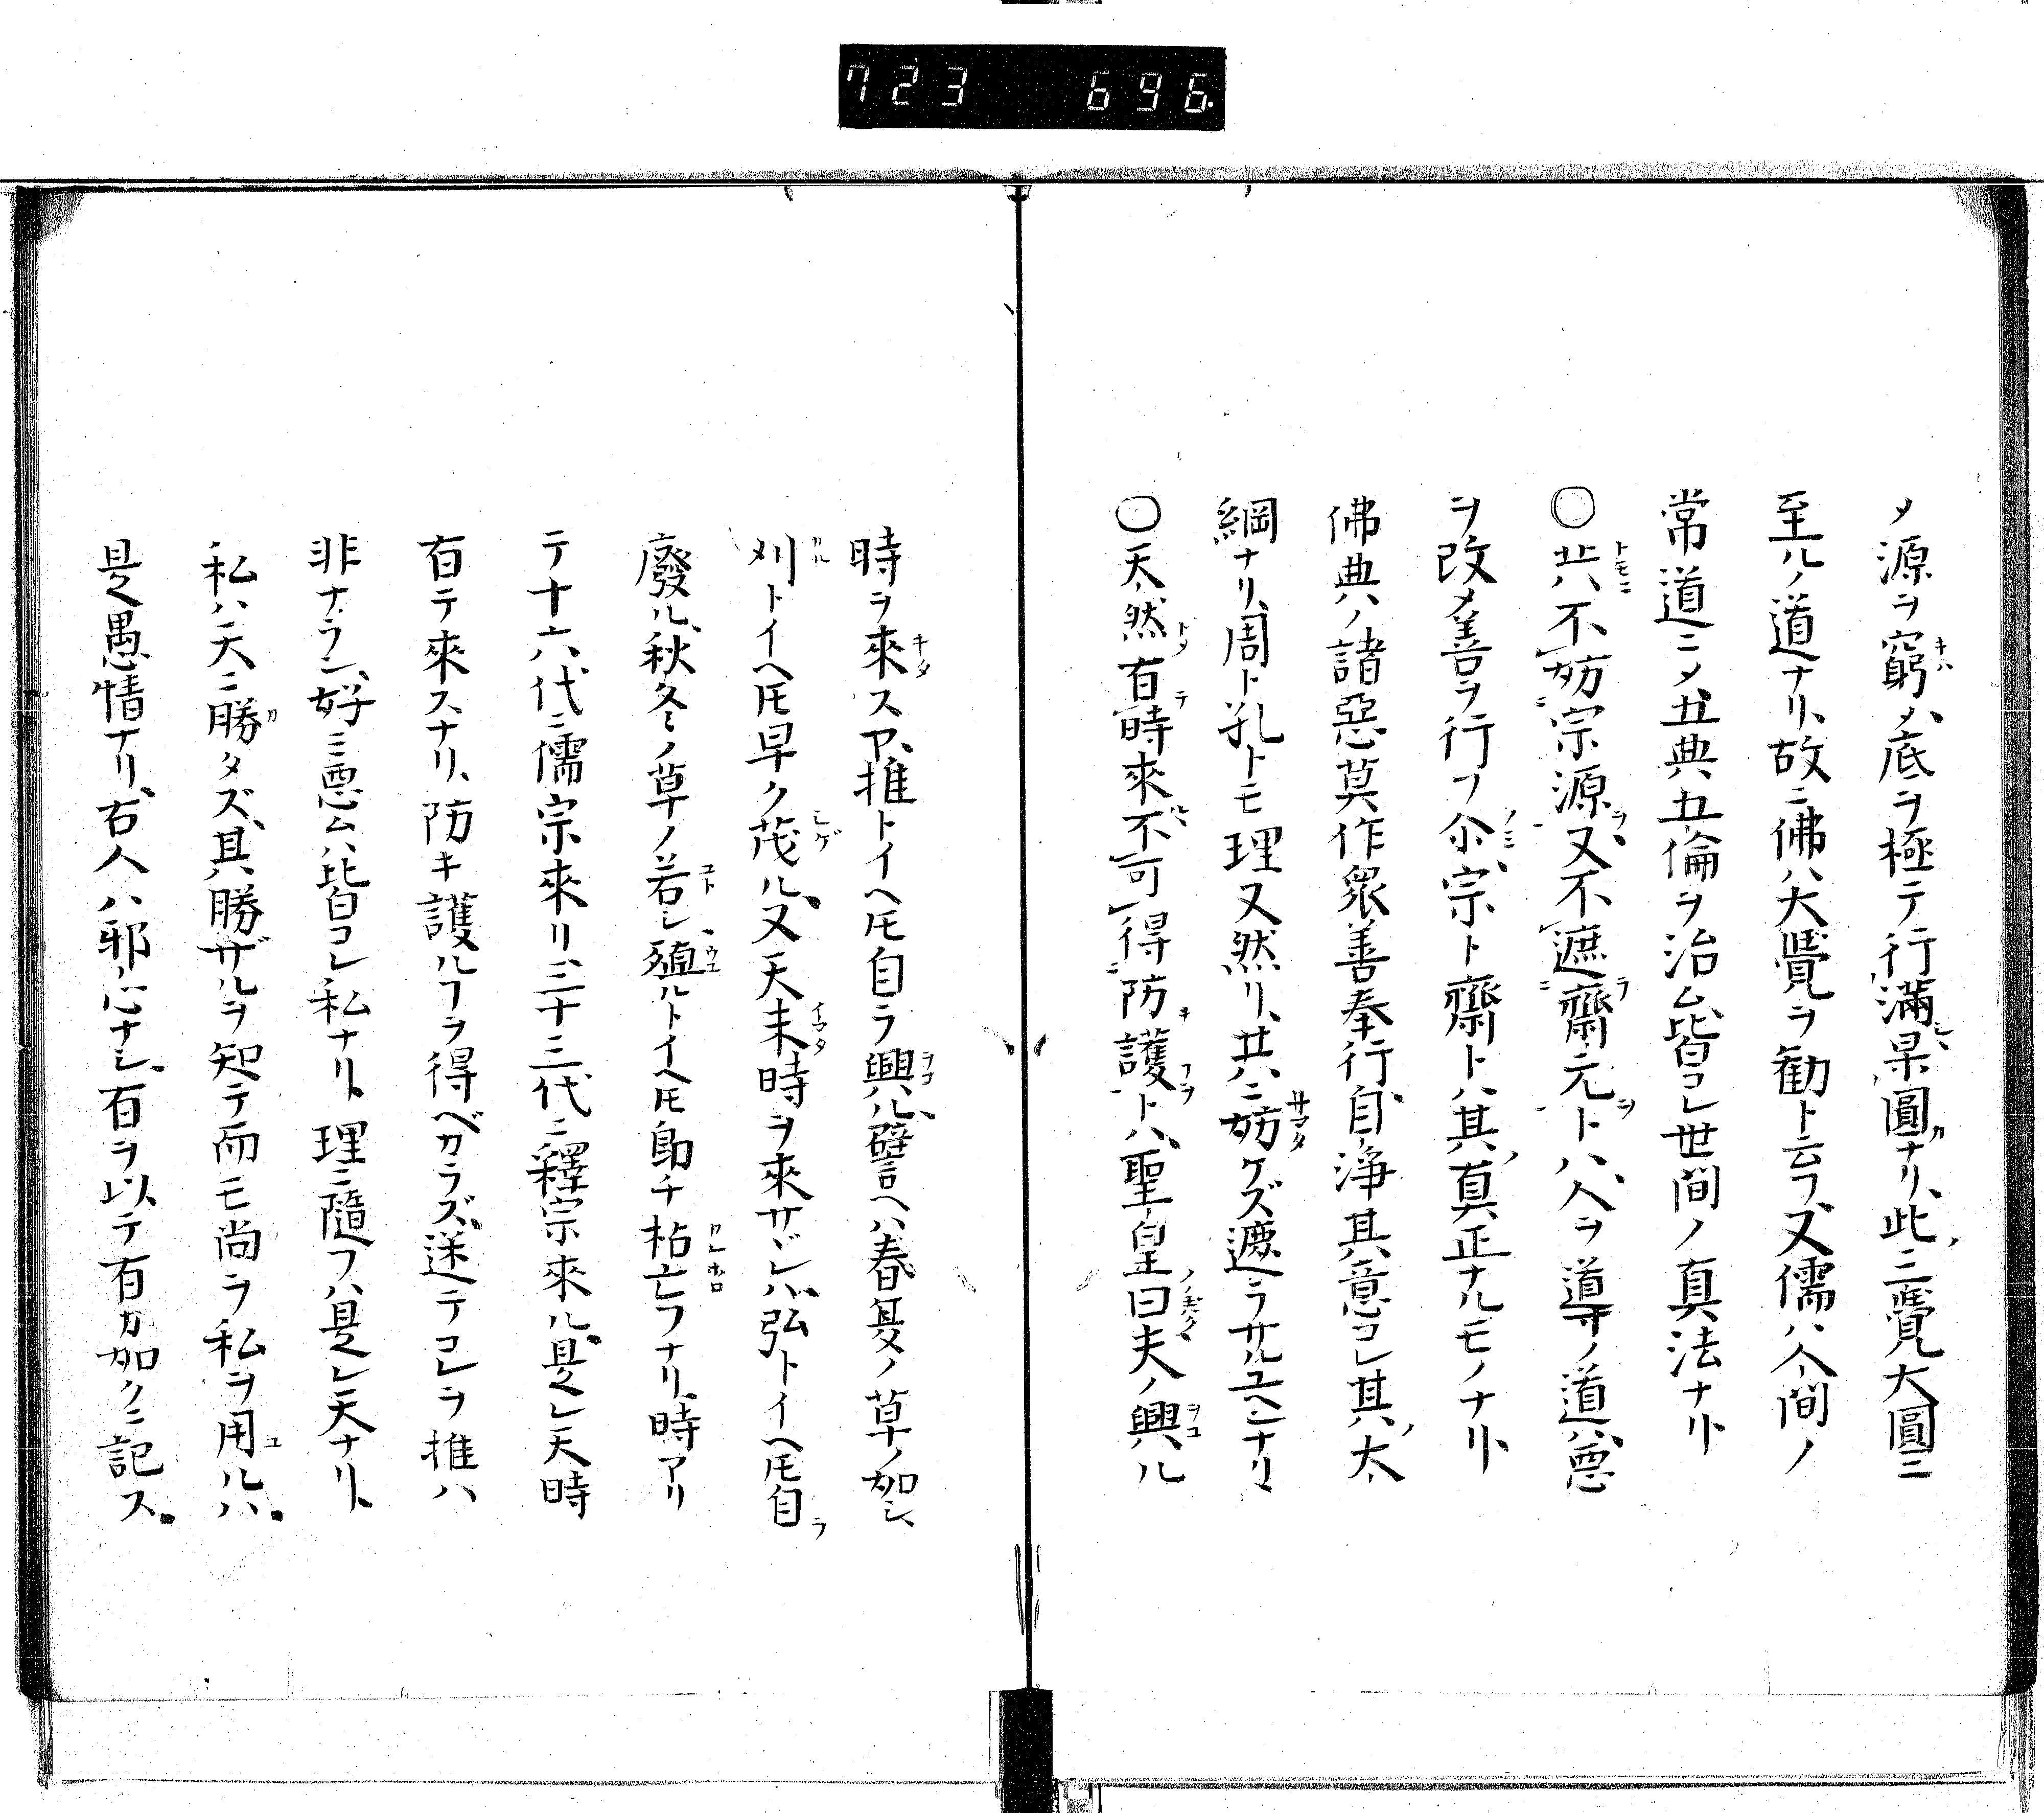 723 696
ノ源ヲ窮メ、底ヲ極テ行滿果圓ナリ、此ニ覺大圓ニ
至ルノ道ナリ、故ニ佛ハ大覺ヲ勧ト云フ、又儒ハ人間ノ
常道ニメ五典五倫ヲ治ム、皆コレ世間ノ真法ナリ、
○共不妨宗源又不遮齋元トハ、人ヲ導ノ道ハ、悪
ヲ改メ善ヲ行フ尒宗ト齋トハ其真正ナルモノナリ、
佛典ハ諸惡莫作衆善奉行自浄其意コレ其太
綱ナリ、周ト孔トモ理又然リ、共ニ妨ケズ遮ラザルユヘンナリ
○天然有時來不可得防護トハ、聖皇曰夫ノ興ル
時ヲ來スヤ、推トイヘ𪜈自ラ興ル、譬ヘハ春夏ノ草ノ如シ、
刈トイヘ𪜈早ク茂ル、又天未時ヲ來サヾレハ、弘トイヘ𪜈自ラ
廢ル、秋冬ノ草ノ若シ、殖ルトイヘ𪜈即チ枯亡フナリ、時アリ
テ十六代ニ儒宗來リ、三十三代ニ釋宗來ル、是レ天時
有テ來スナリ、防キ護ルヿヲ得ベカラズ、逆テコレヲ推ハ
非ナラン、好ミ悪ムハ皆コレ私ナリ、理ニ隨フハ是レ天ナリ、
私ハ天ニ勝タズ、其勝ザルヲ知テ而モ尚ヲ私ヲ用ルハ
是愚情ナリ、右人ハ邪心ナシ、有ヲ以テ有カ如クニ記ス